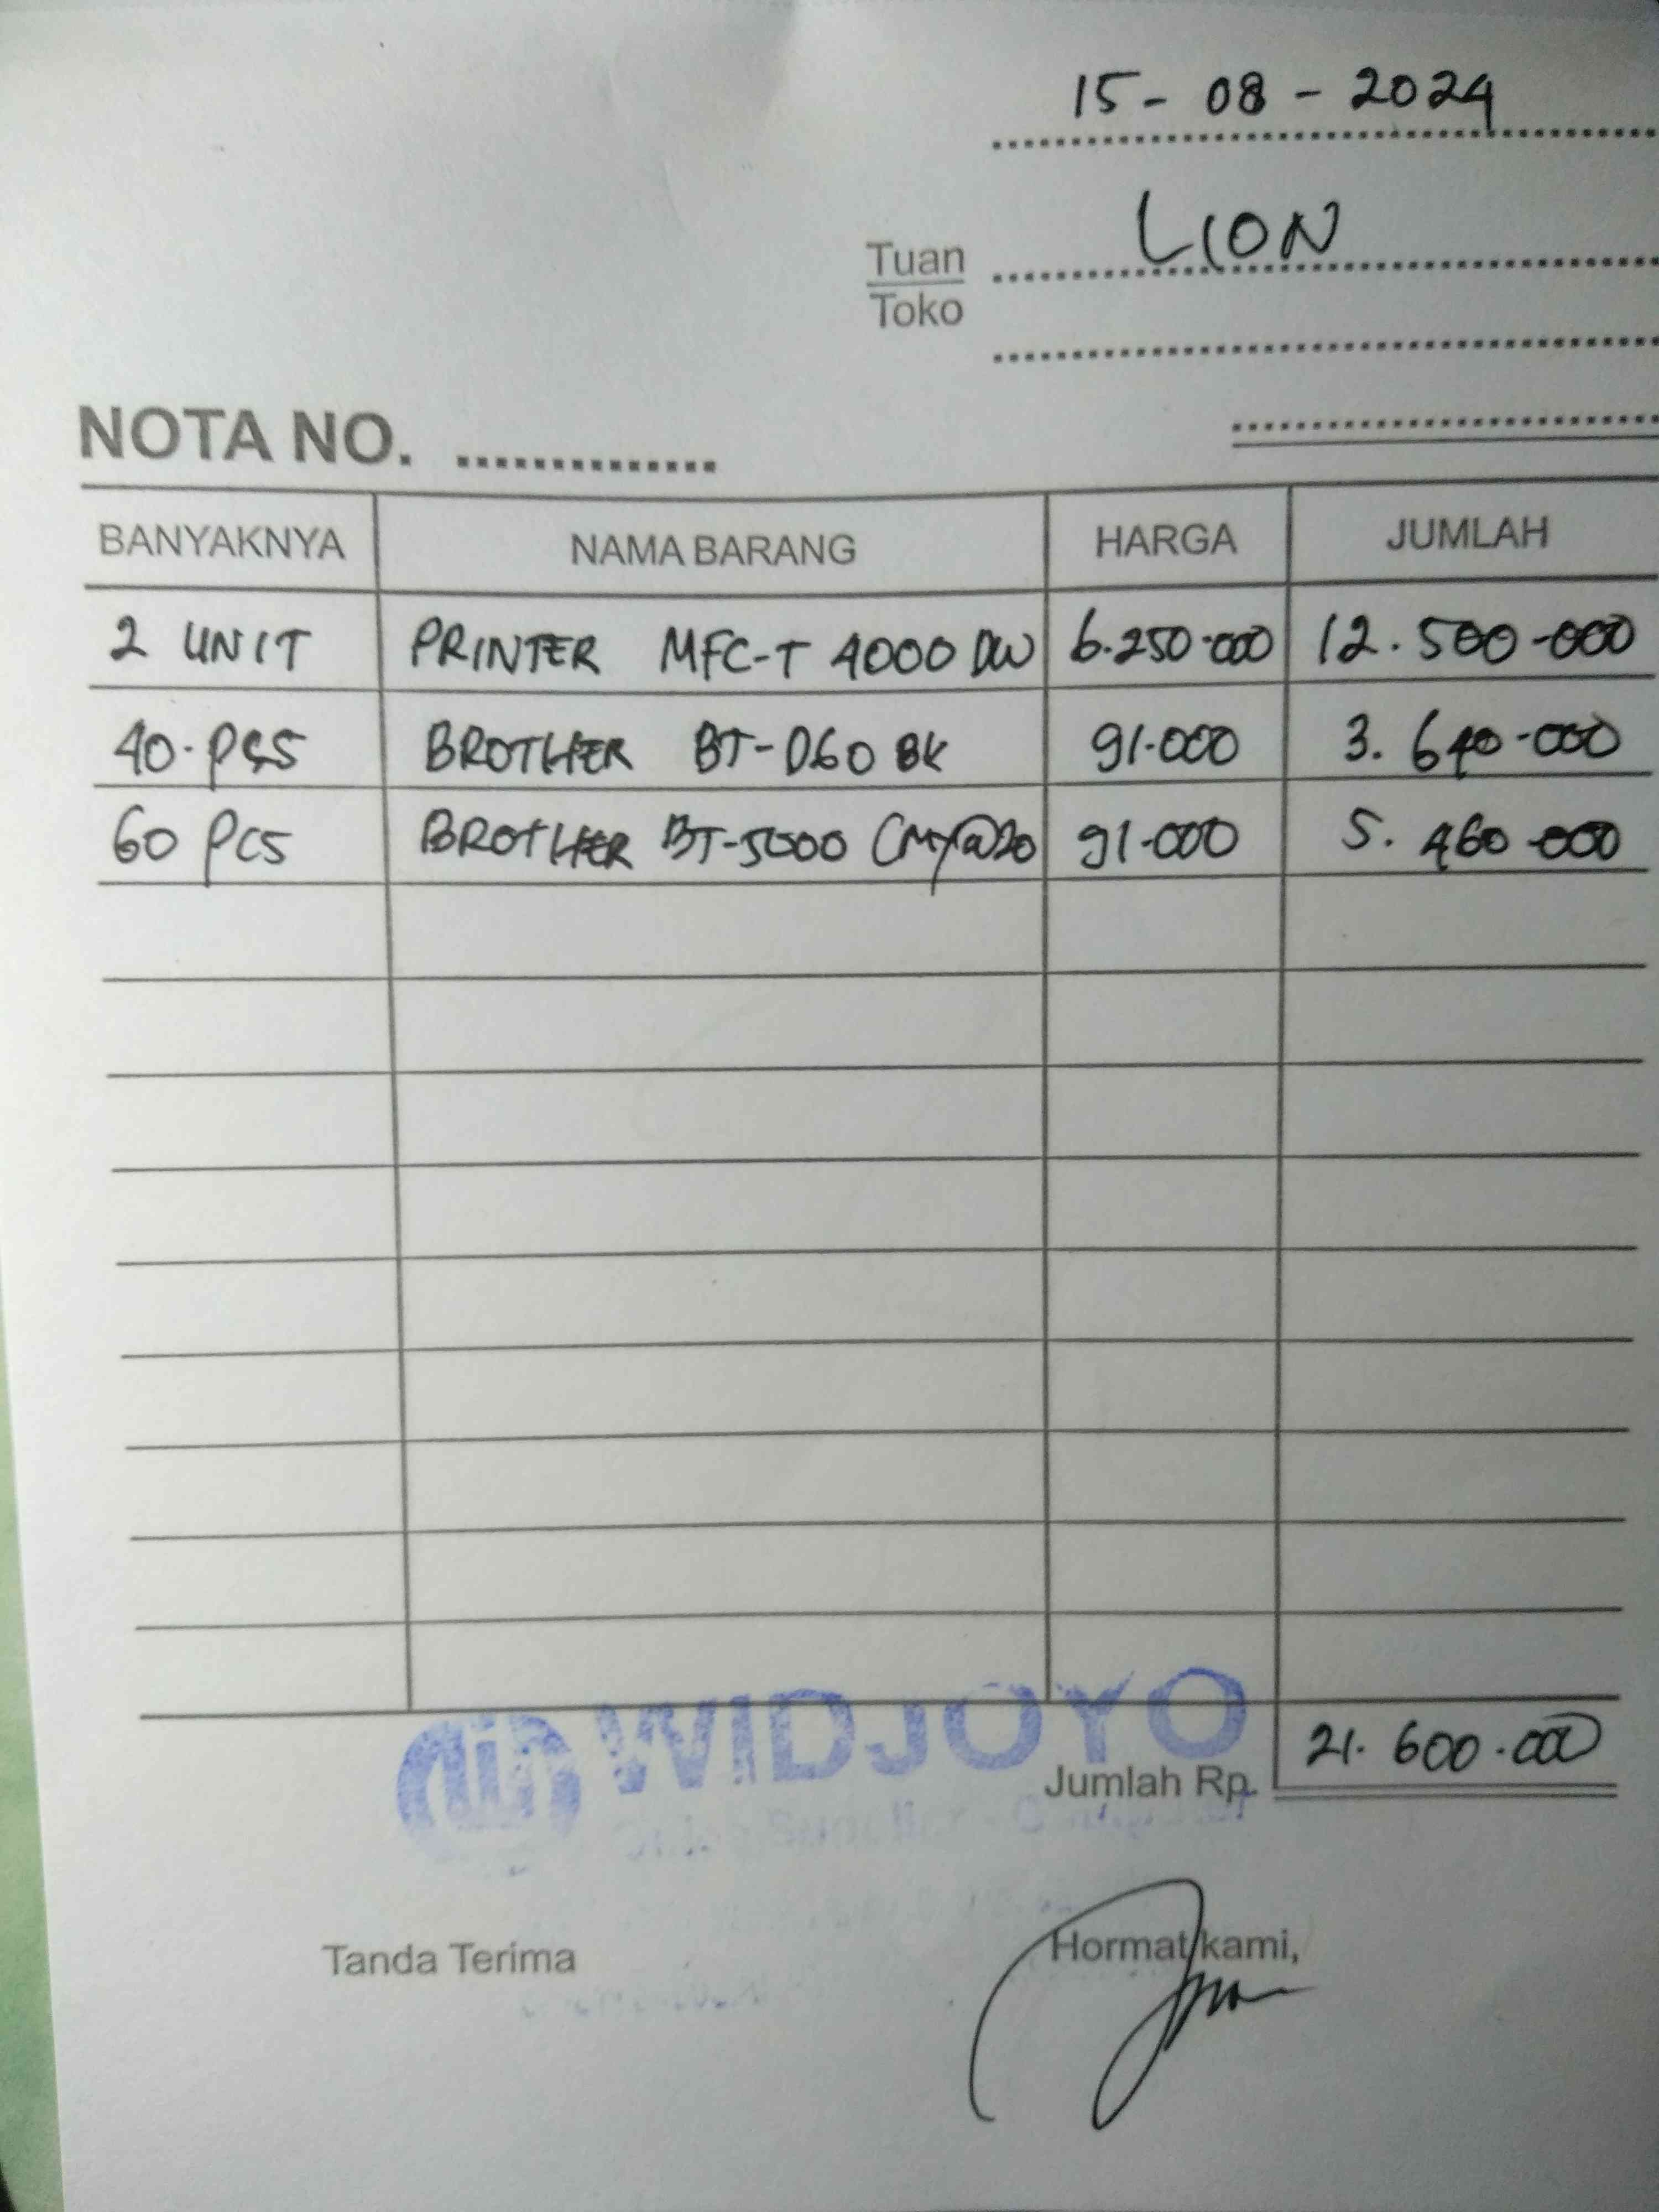 15-08-2024
Tuan LION
Toko
NOTA NO. ..............
BANYAKNYA NAMA BARANG HARGA JUMLAH
2 UNIT PRINTER MFC-T 4000 DW 6.250.000 12.500.000
40 PCS BROTHER BT-D60 BK 91.000 3.640.000
60 PCS BROTHER BT-5000 CMY@20 91.000 5.460.000
WIDJOYO
Jumlah Rp. 21.600.000
Tanda Terima Hormat kami,